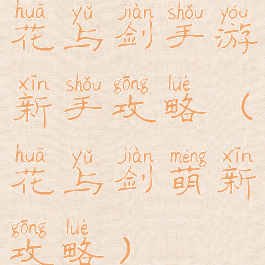 huā yǔ jiàn shǒu yóu
花与剑手游
xīn shǒu gōng lüè
新手攻略（
huā yǔ jiàn méng xīn
花与剑萌新
gōng lüè
攻略）